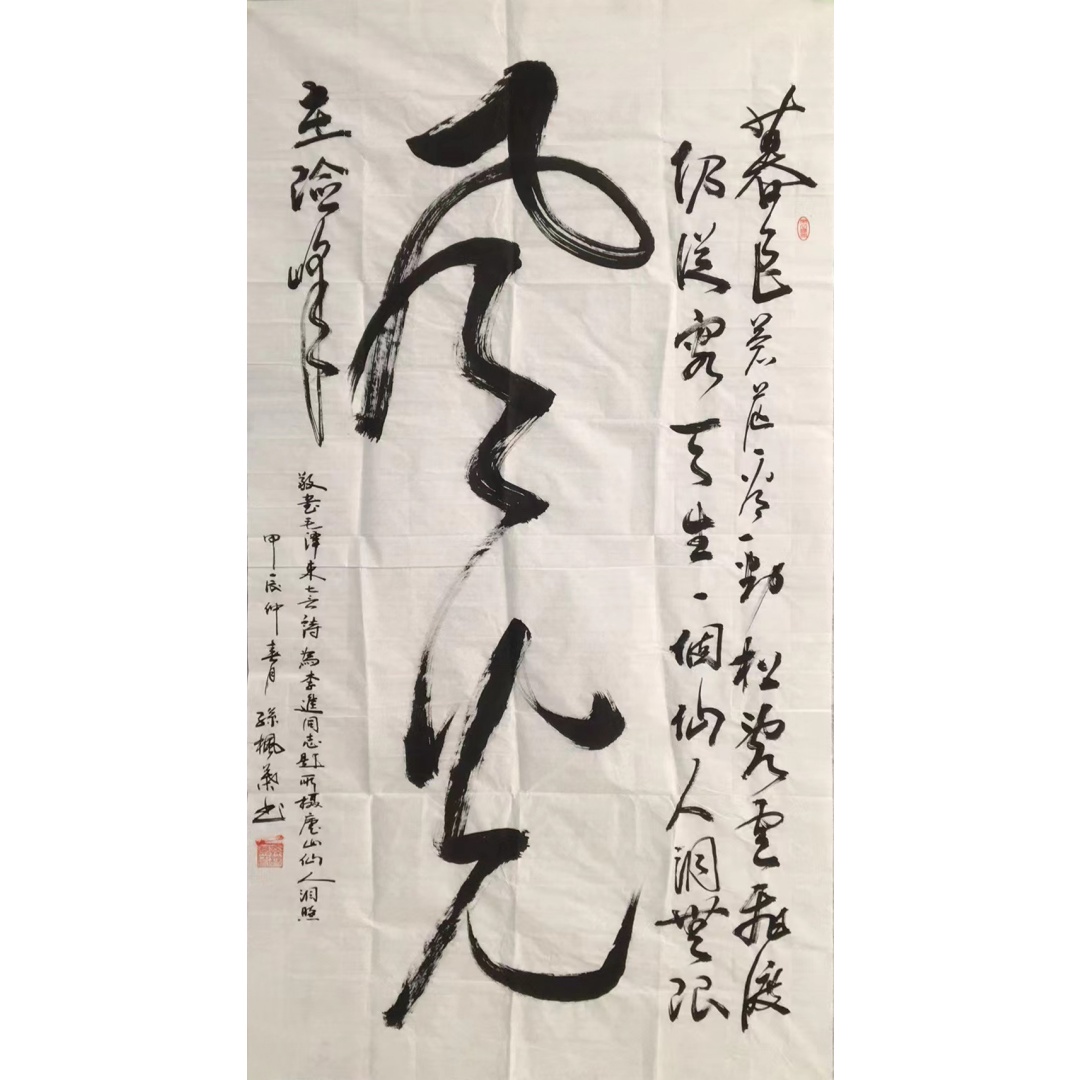 暮色蒼茫看勁松亂雲飛渡
仍從容天生一個仙人洞無限
風光
在險峰
敬書毛澤東七言詩為李進同志題所攝廬山仙人洞照
甲辰仲春月孫楓葉书